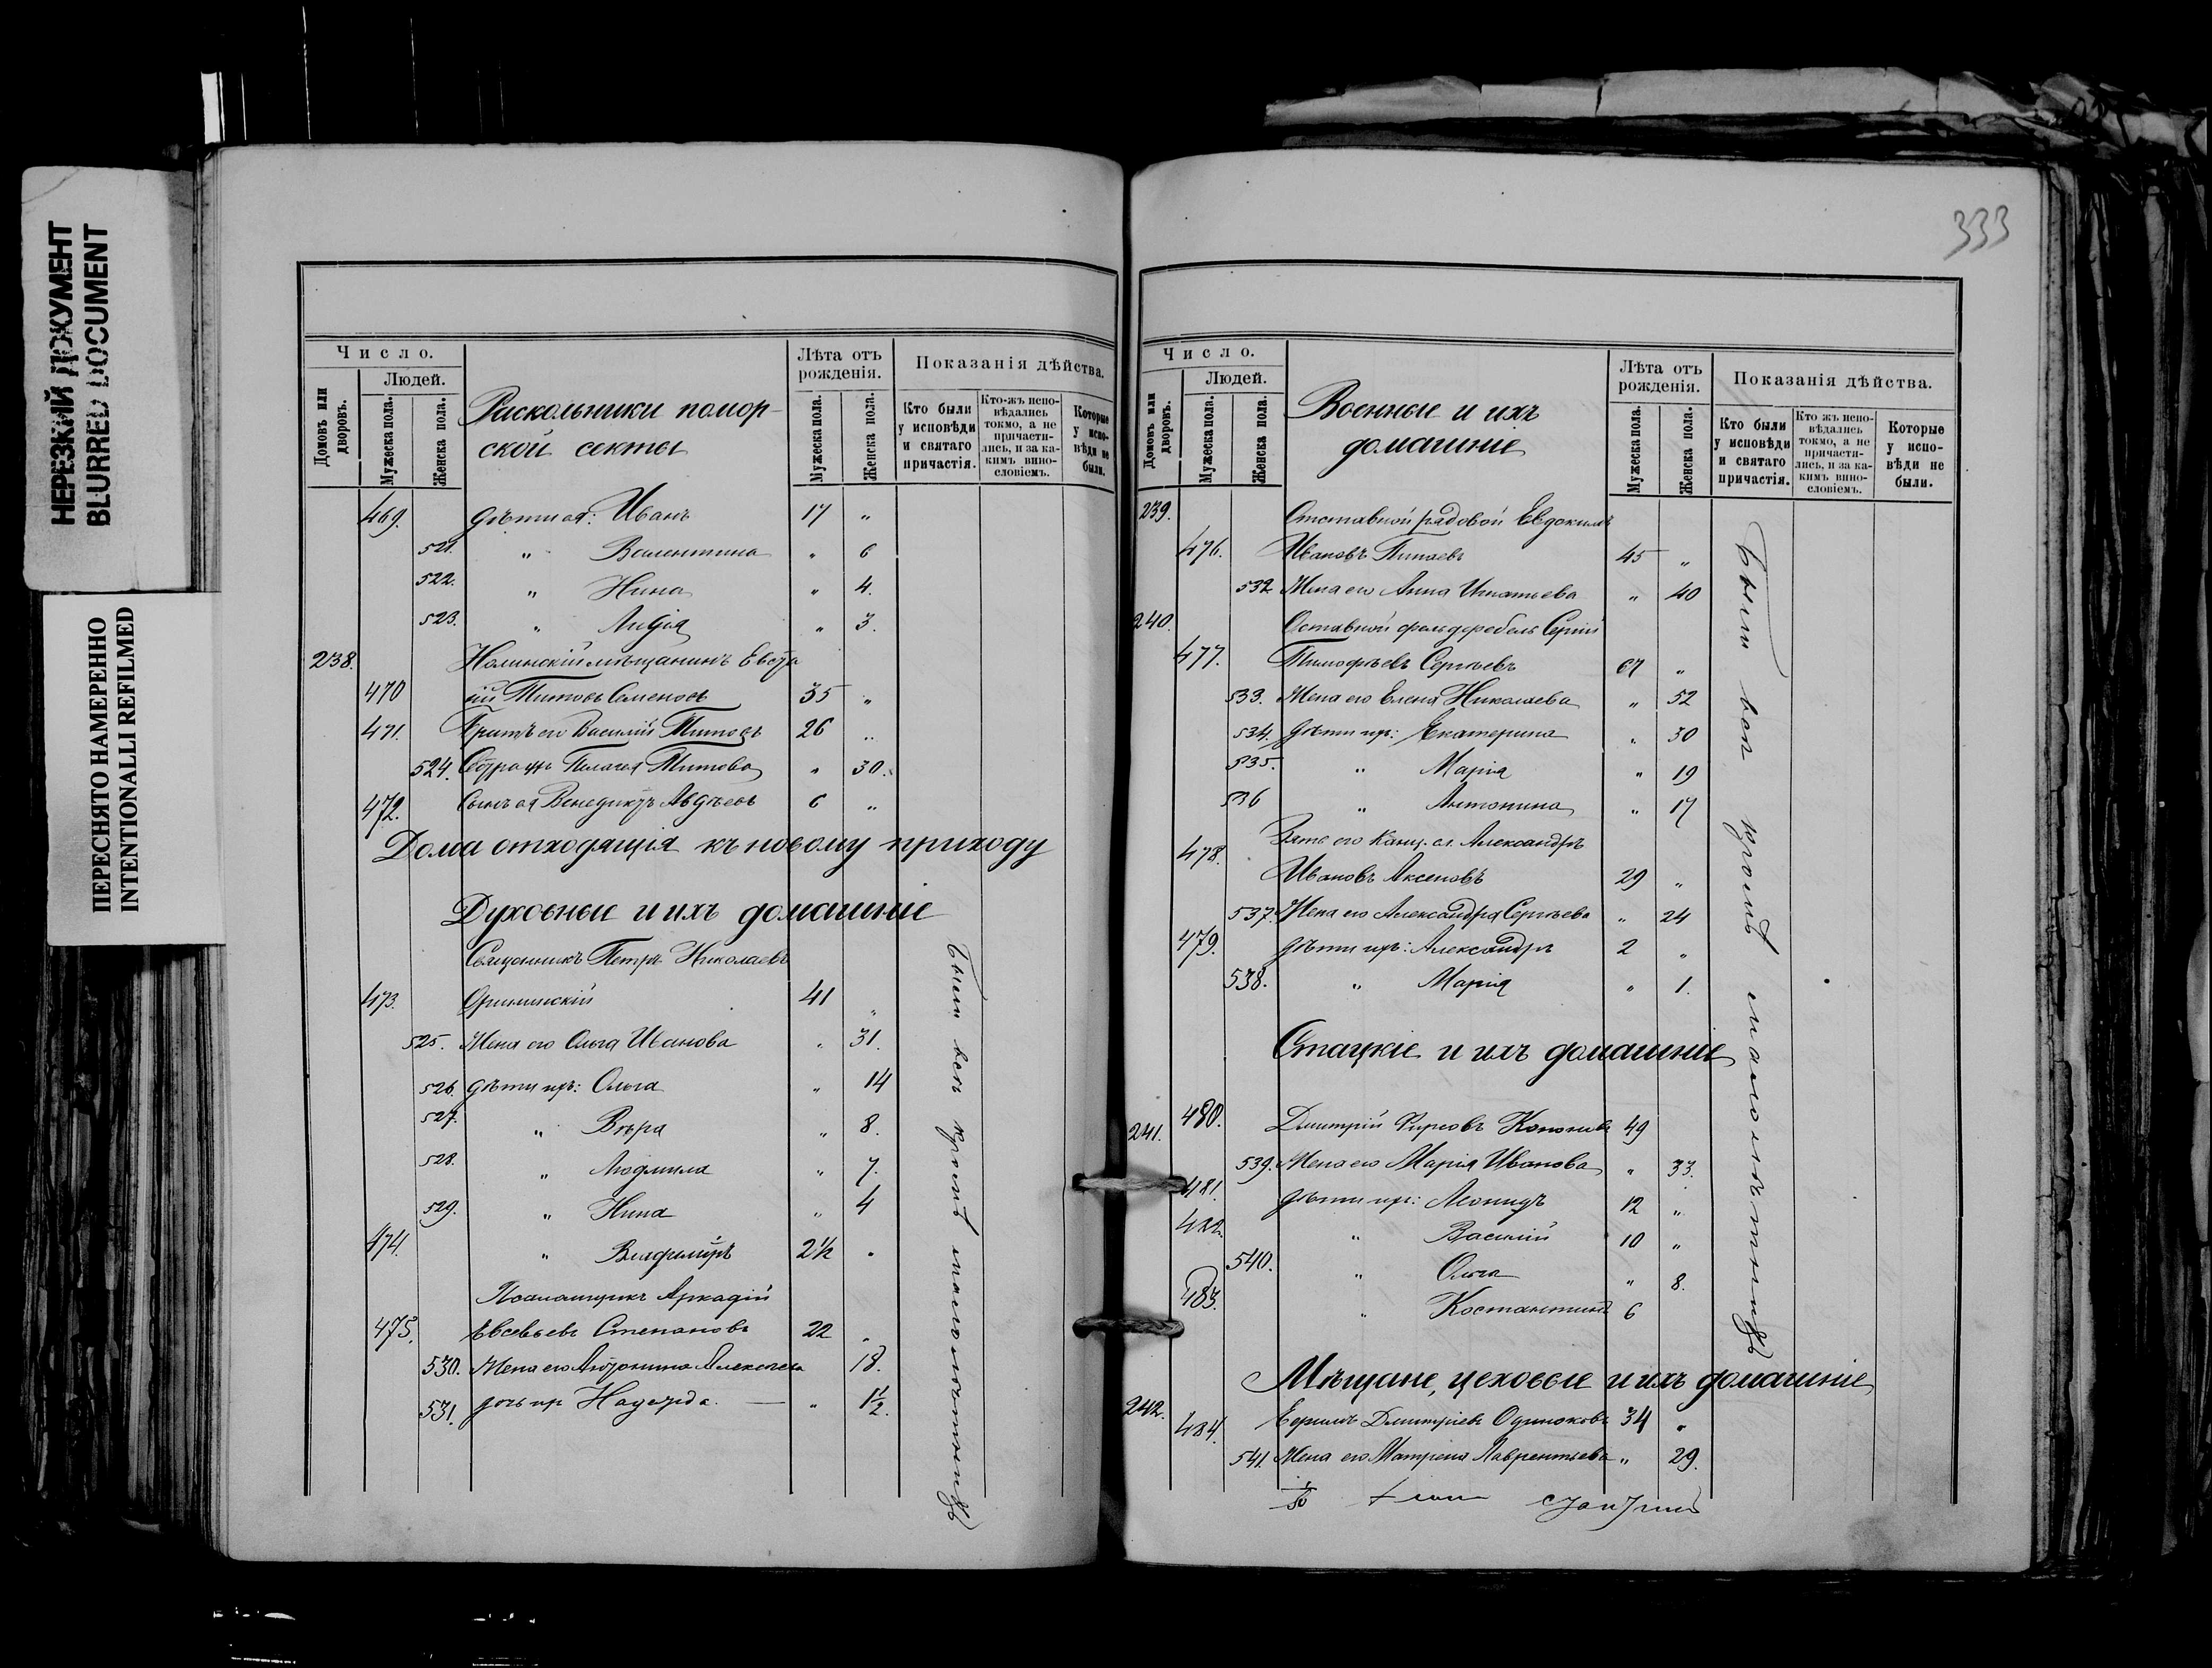 НЕРЕЗКИЙ ДОКУМЕНТ
BLURRED DOCUMENT
ПЕРЕСНЯТО НАМЕРЕННО
INTENTIONALLI REFILMED
Число.
Людей.
Домовъ или дворовъ.
Мужеска пола.
Женска пола.
Раскольники помор-
ской секты
Лѣта отъ рожденія.
Мужеска пола.
Женска пола.
Показанія дѣйства.
Кто были у исповѣди и святаго причастія.
Кто-жъ испо-вѣдались токмо, а не причасти-лись, и за ка-кимъ вино-словіемъ.
Которые у испо-вѣди не были.
469. дѣти ея: Иванъ 17 "
521. " Валентина " 6
522. " Нина " 4.
523. " Лидія " 3.
238. Нолинскій мѣщанинъ
470 Титовъ Семеновъ 35 "
471. Братъ его Василій Титовъ 26 "
524. Сестра ихъ Пелагея Титова " 30.
472. Сынъ ея Венедиктъ Авдѣевъ 6 "
Дома отходящія къ новому приходу
Духовные и ихъ домашніе
Священникъ Петръ Николаевъ
473. 41 "
525. Жена его Ольга Иванова " 31.
526. дѣти ихъ: Ольга " 14
527. " Вѣра " 8.
528. " Людмила " 7.
529. " Нина " 4
474. " Владиміръ 2½ "
Псаломщикъ Аркадій
475. Евсевьевъ Степановъ 22 "
530. Жена его Антонина Алексѣева 18.
531. дочь ихъ Надежда. — " 1½.
Были всѣ кромѣ малолѣтнихъ
333
Число.
Людей.
Домовъ или дворовъ.
Мужеска пола.
Женска пола.
Военные и ихъ
домашніе
Лѣта отъ рожденія.
Мужеска пола.
Женска пола.
Показанія дѣйства.
Кто были у исповѣди и святаго причастія.
Кто жъ испо-вѣдались токмо, а не причасти-лись, и за ка-кимъ вино-словіемъ.
Которые у испо-вѣди не были.
239. Отставной рядовой Евдокимъ
476. Ивановъ 45 "
532. Жена его Анна Игнатьева " 40
240. Оставной фельдфебель Сергій
477. Тимофѣевъ Сергѣевъ 67 "
533. Жена его Елена Николаева " 52
534. дѣти ихъ: Екатерина " 30
535. " Марія " 19
536 " Антонина " 17
Зять его Канц. сл. Александръ
478. Ивановъ Аксеновъ 29 "
537. Жена его Александра Сергѣева " 24
479. дѣти ихъ: Александръ 2 "
538. " Марія " 1.
Стацкіе и ихъ домашніе
241. 480. Дмитрій Фирсовъ 49
539. Жена его Марія Иванова " 33.
481. дѣти ихъ: Леонидъ 12 "
482. " Василій 10 "
540. " Ольга " 8.
483. " Костантинъ 6
Мѣщане, цеховые и ихъ домашніе
242. 484. Ефимъ Дмитріевъ Одиноковъ 34 "
541. Жена его Матрена Лаврентьева " 29.
Были всѣ кромѣ малолѣтнихъ